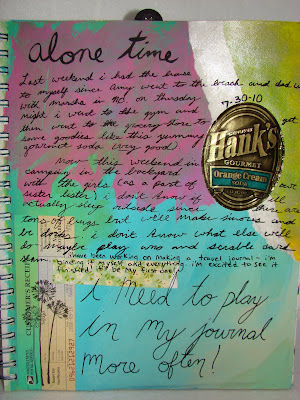 alone time
Last weekend i had the house
to myself since Amy went to the beach and dad w
with marda in MO. on Thursday
night i went to the gym and
then went to the grocery store to get
some goodies like this yummy
gourmet soda (very good)
7-30-10
GENUINE
Hank's
GOURMET
Orange Cream
SODA
now this weekend im
camping in the backyard
with the girls (as a part of
sister sister) i don't know if will
actually sleep outside since there are
tons of bugs but we'll make smores and
be done. i don't know what else we'll
do maybe play uno and scrabble card
i have been working on making a travel journal - i'm
binding it myself and everything. i'm excited to see it
finished! it'll be my first one!
CUSTOMER'S RECEIPT
i need to play
in my journal
more often!